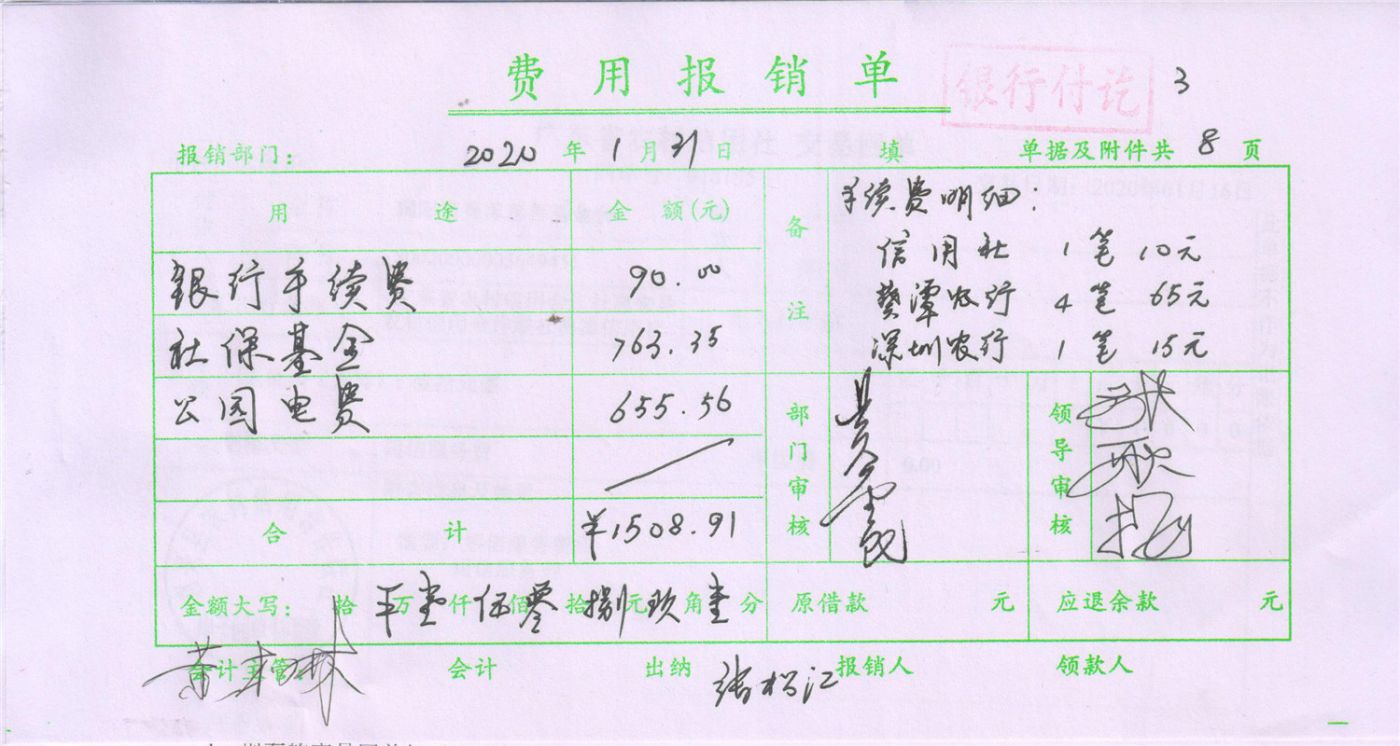 费用报销单
银行付讫
3
报销部门： 2020 年 1 月 31 日 填 单据及附件共 8 页
用途 金额(元) 备注 手续费明细：
信用社 1笔 10元
银行手续费 90.00
潭农行 4笔 65元
社保基金 763.35
深圳农行 1笔 15元
公园电费 655.56
部门审核 领导审核
合计 ¥1508.91
金额大写： 拾 万壹仟伍佰零拾捌元玖角壹分 原借款 元 应退余款 元
会计主管 会计 出纳 张松江 报销人 领款人